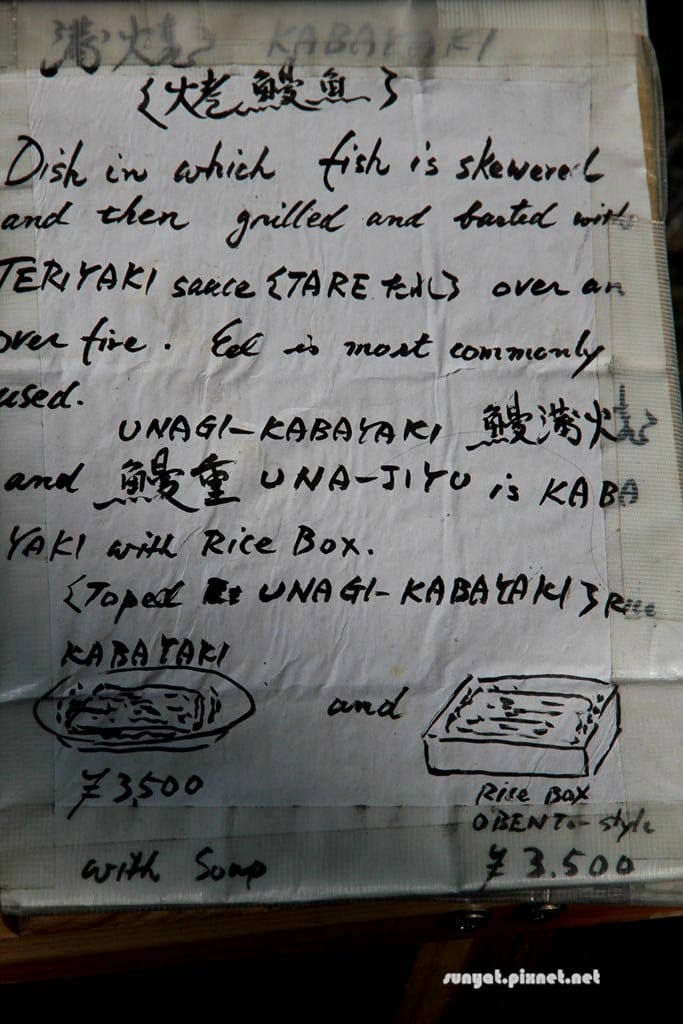 蒲焼 KABAYAKI
{烤鰻魚}
Dish in which fish is skewered
and then grilled and basted with
TERIYAKI sauce {TARE たれ} over an
over fire. Eel is most commonly
used.
UNAGI-KABAYAKI 鰻蒲焼
and 鰻重 UNA-JIYU is KABA
YAKI with Rice Box.
{Toped UNAGI-KABAYAKI} Rice
KABAYAKI
and
¥3,500
Rice Box
OBENTO-style
with Soup
¥3.500
sunyat.pixnet.net